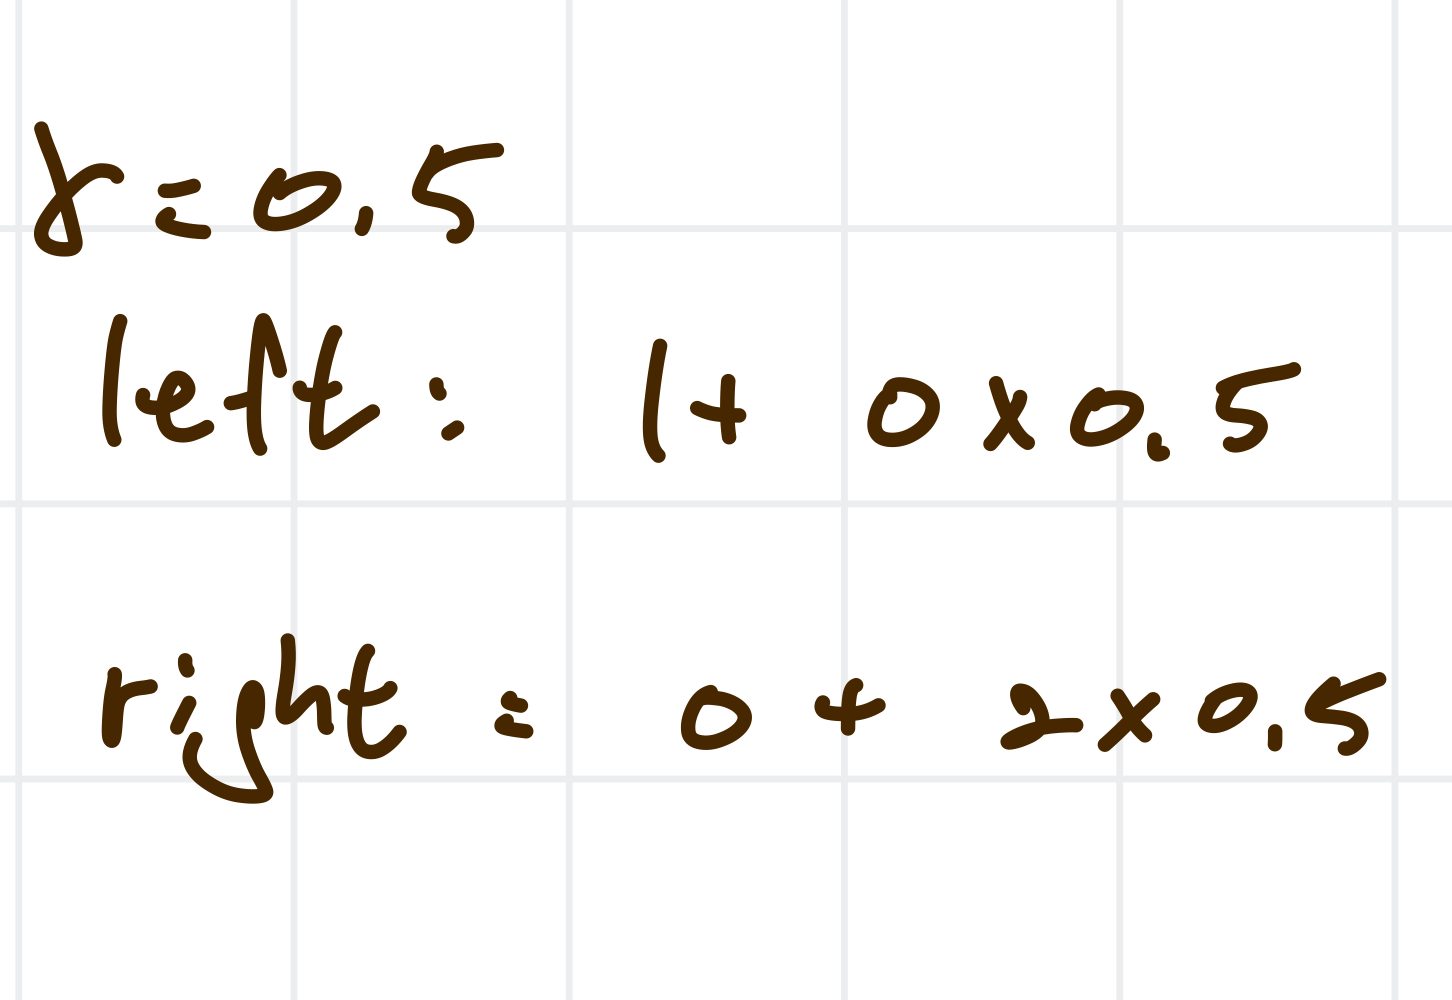 γ = 0.5
left : 1 + 0 x 0.5
right = 0 + 2 x 0.5